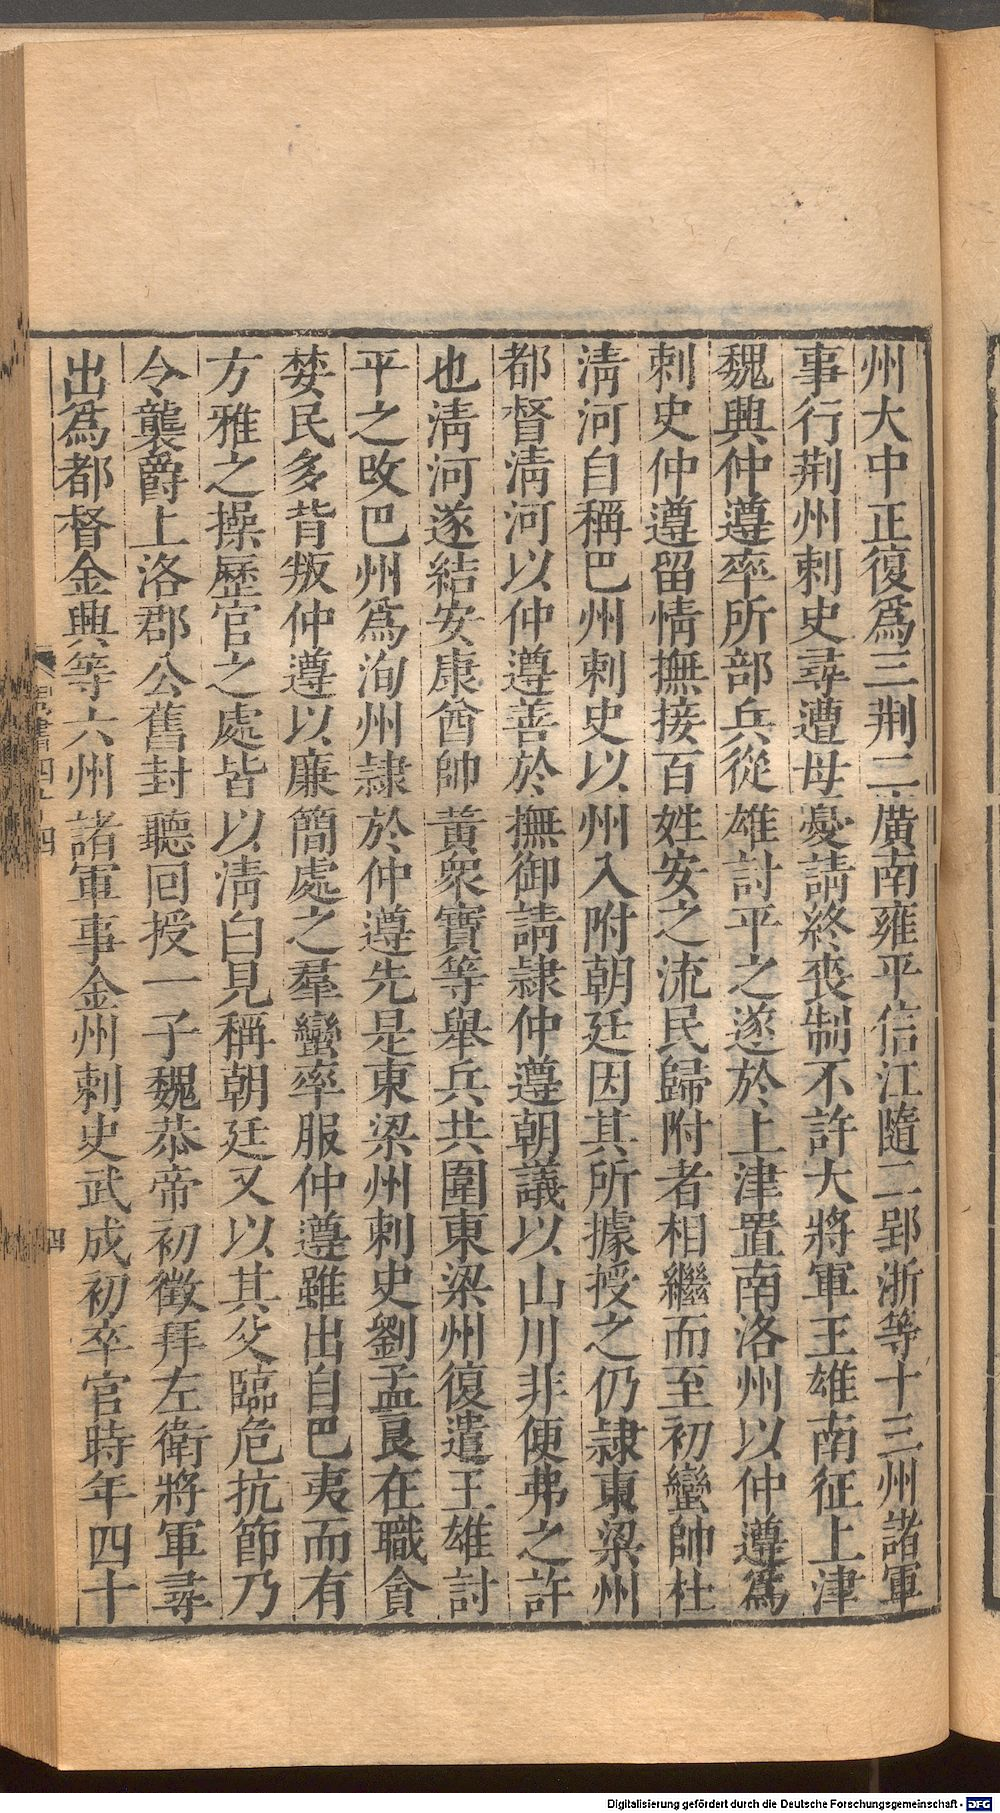 州大中正復爲三荆二廣南雍平信江隨二郢浙等十三州諸軍
事行荆州刺史尋遭母憂請終喪制不許大將軍王雄南征上津
魏興仲遵率所部兵從雄討平之遂於上津置南洛州以仲遵爲
刺史仲遵留情撫接百姓安之流民歸附者相繼而至初蠻帥杜
淸河自稱巴州刺史以州入附朝廷因其所據授之仍隷東梁州
都督淸河以仲遵善於撫御請隷仲遵朝議以山川非便弗之許
也淸河遂結安康酋帥黃衆寶等舉兵共圍東梁州復遣王雄討
平之改巴州爲洵州隷於仲遵先是東梁州刺史劉孟良在職貪
婪民多背叛仲遵以廉簡處之羣蠻率服仲遵雖出自巴夷而有
方雅之操歷官之處皆以淸白見稱朝廷又以其父臨危抗節乃
令襲爵上洛郡公舊封聽回授一子魏恭帝初徵拜左衛將軍尋
出爲都督金興等六州諸軍事金州刺史武成初卒官時年四十
四
Digitalisierung gefördert durch die Deutsche Forschungsgemeinschaft - DFG